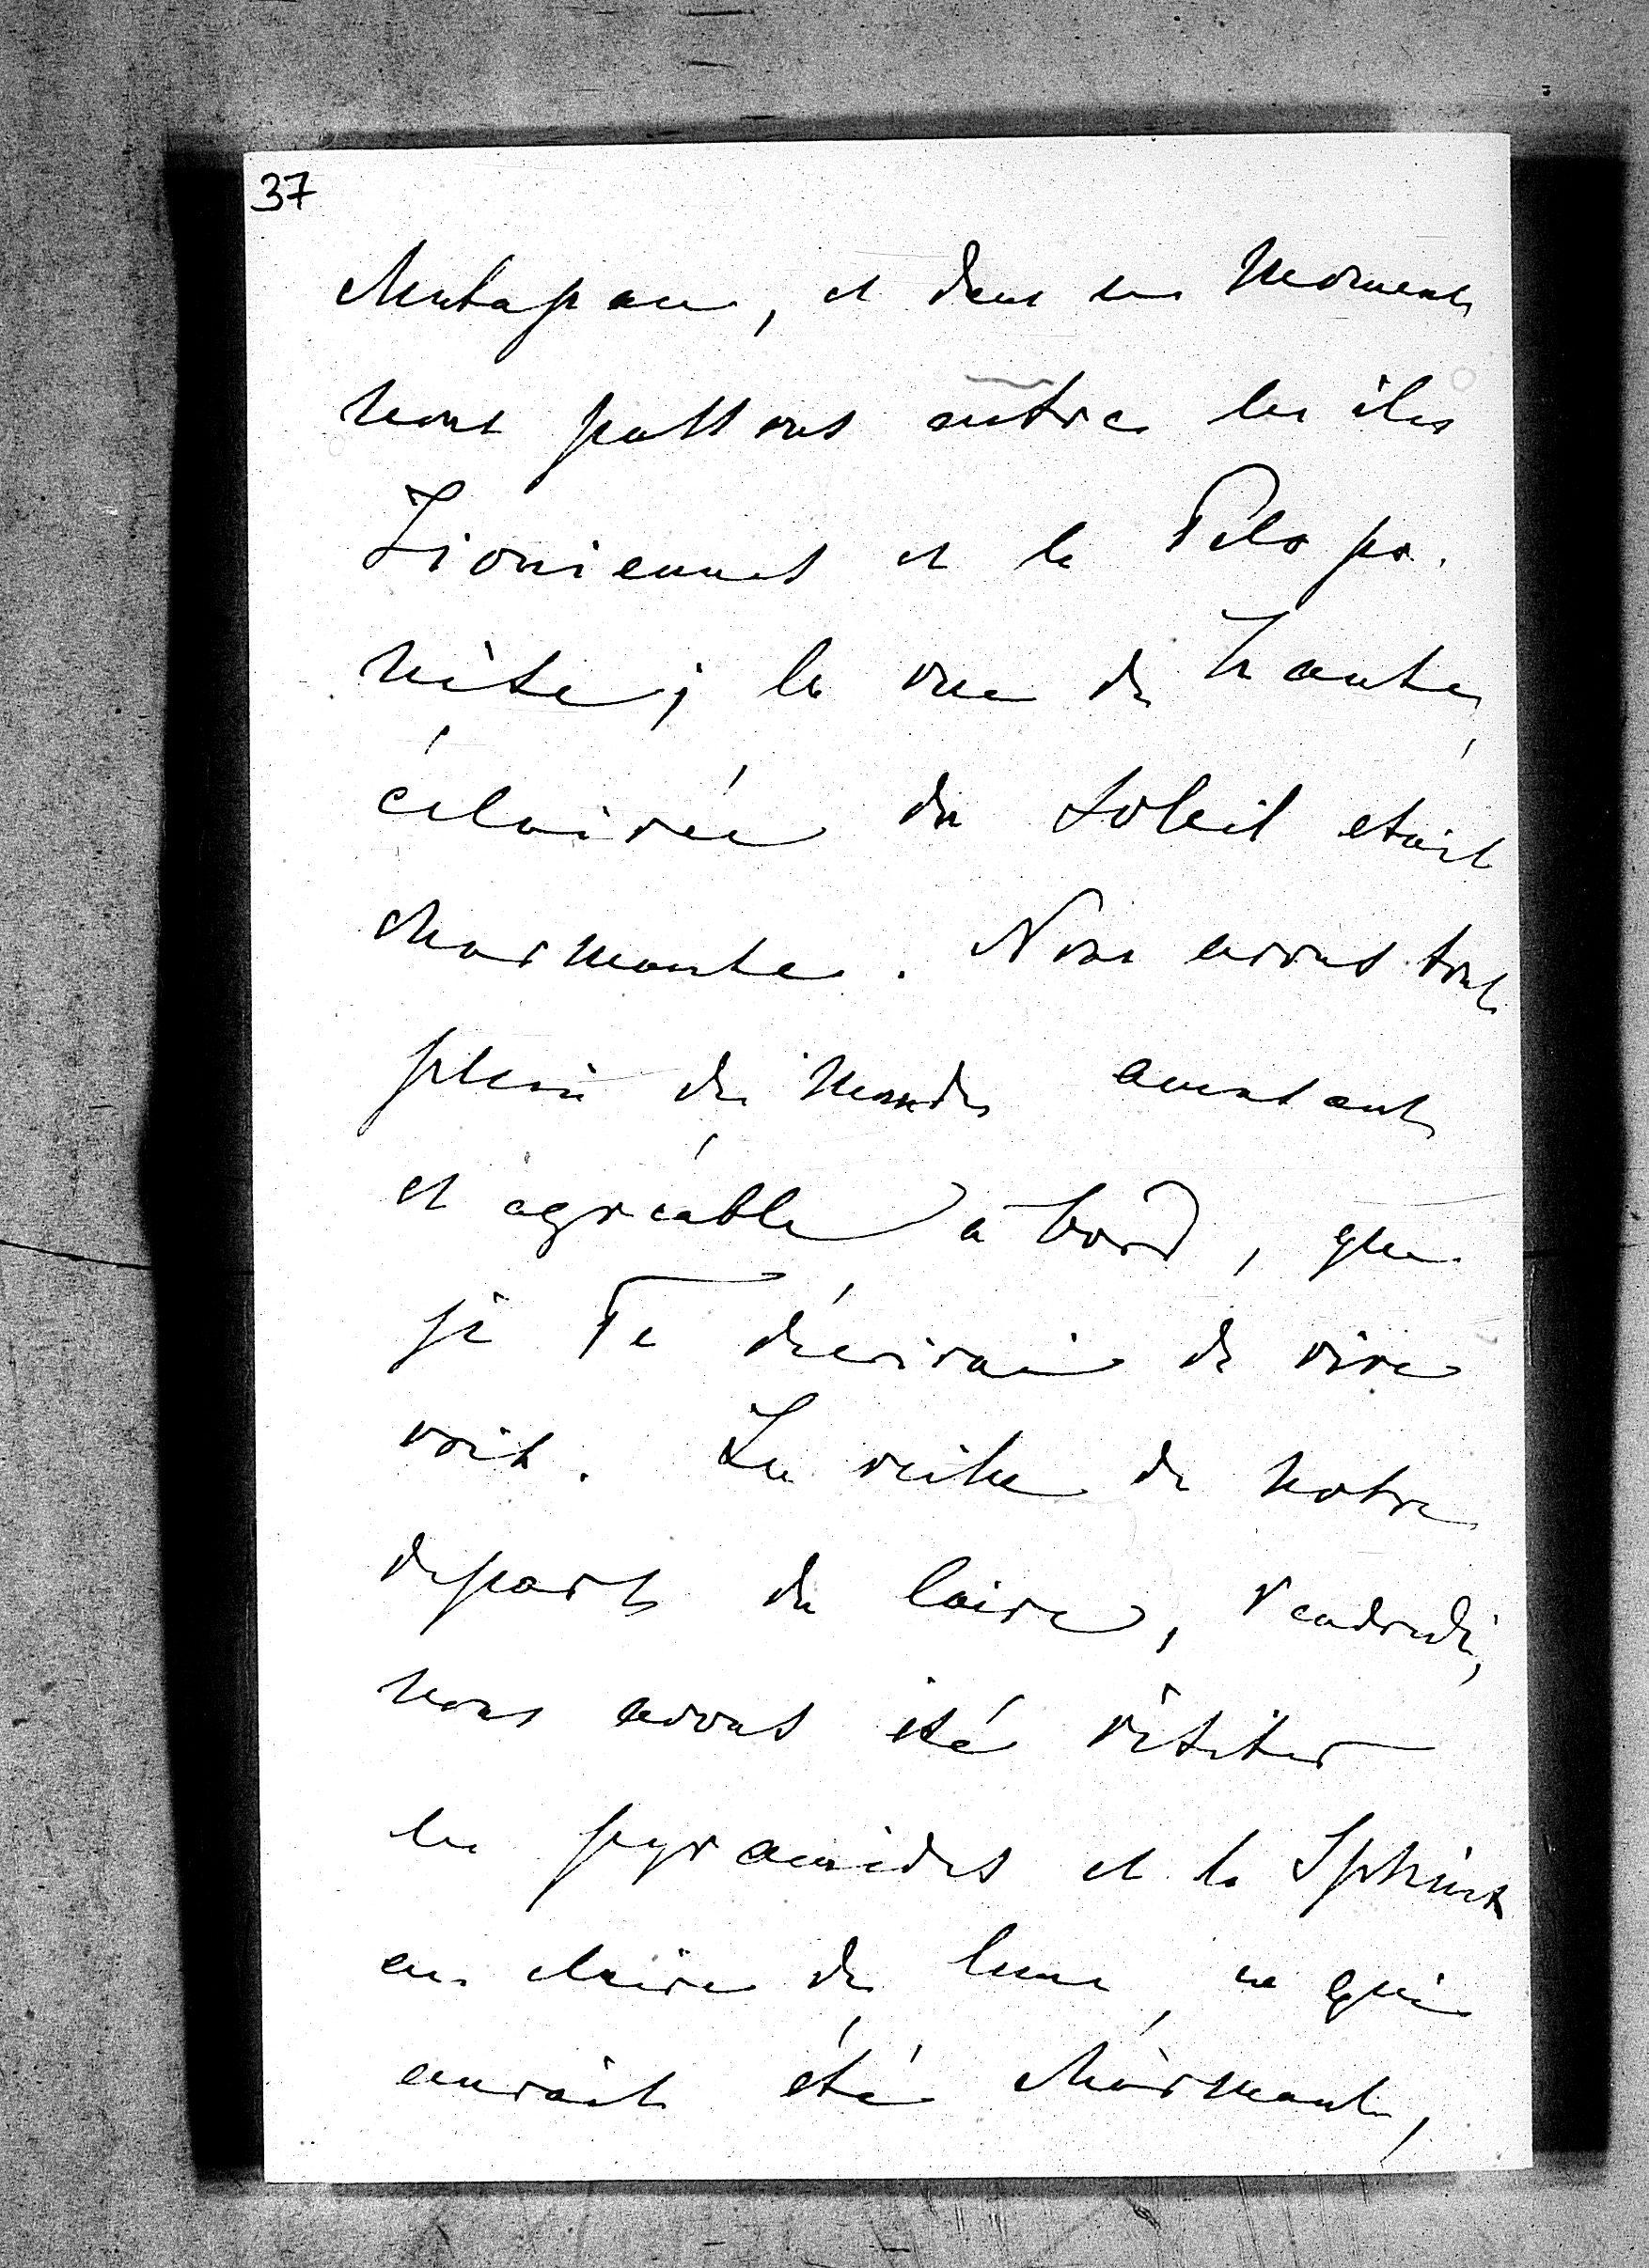 37
Matapan, et dans ce moment
nous passons entre les îles
Iioniennes et le Pélopo.
nèse; la vue de Zante,
éclairée du soleil était
charmante. Nous avons tout
plein de monde amusant
et agréable à bord, que
je Te décrirai de vive
voix. La veille de notre
départ du Caire, Vendredi,
nous avons été visiter
les pyramides et le Sphinx
au claire de lune, ce qui
aurait été charmant,